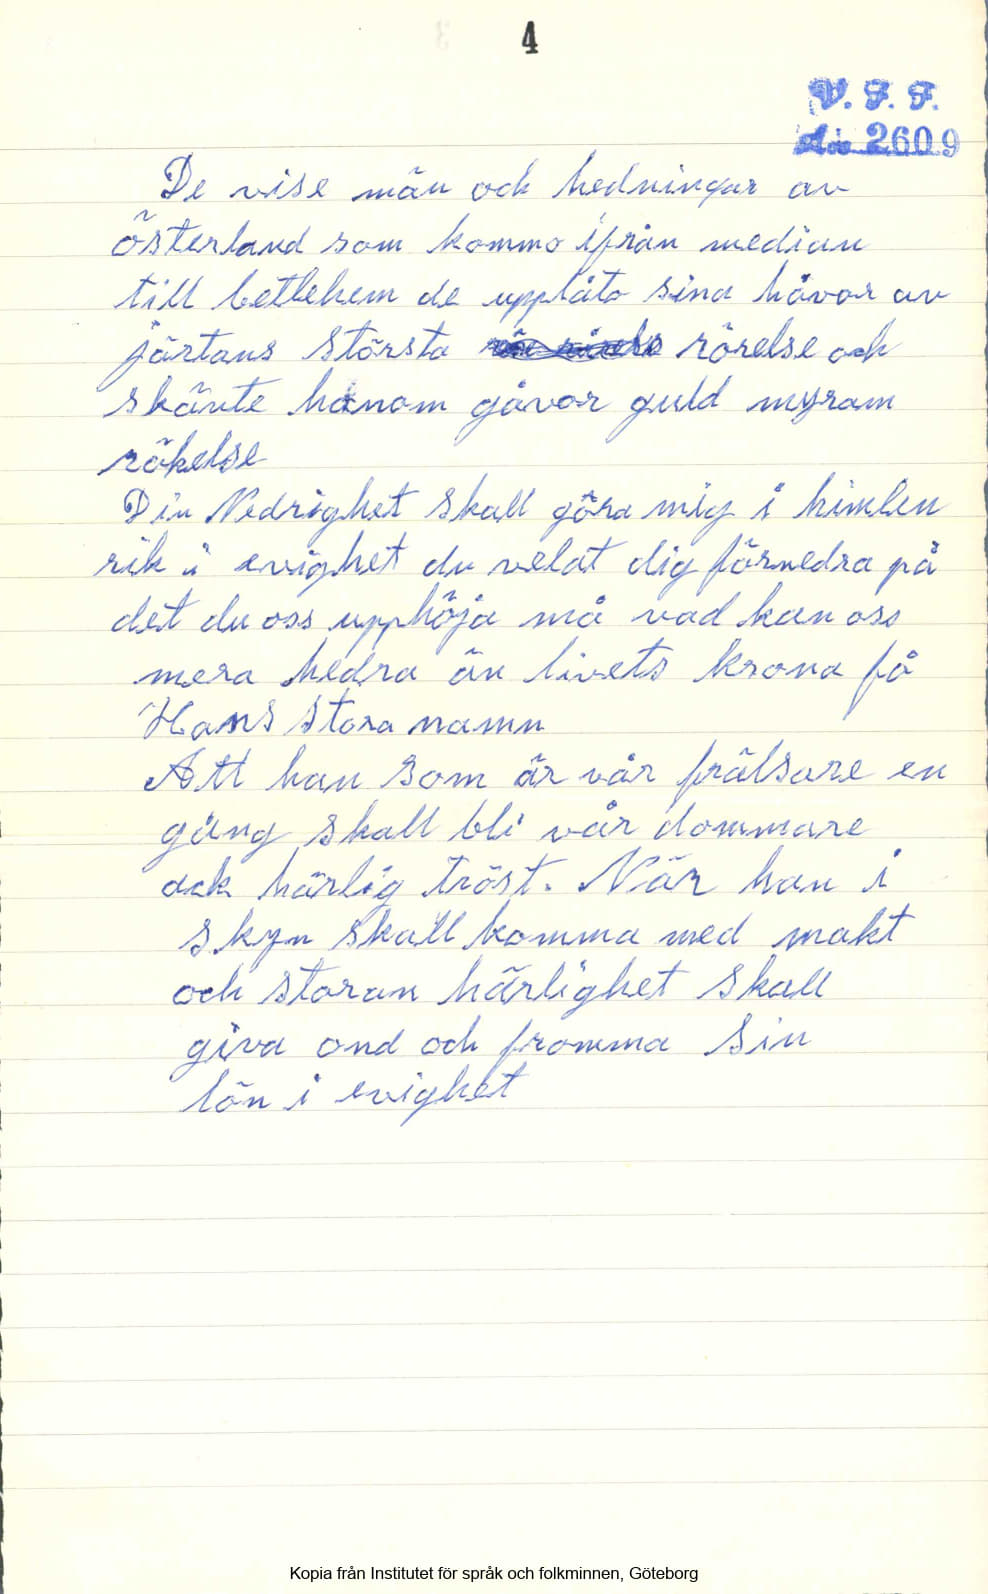 4
V. F. F.
2609
De vise män och hedningar av
österland som kommo ifrån median
till betlehem de uppläto sina håvor av
järtans största rörelse och
skänte honom gåvor guld myram
rökelse
Din Nedrighet skall göra mig i himlen
rik i evighet du velat dig förnedra på
det du oss upphöja må vad kan oss
mera hedra än livets krona få
Hans stora namn
Att han som är vår frälsare en
gång skall bli vår dommare
ack härlig tröst. När han i
skyn skall komma med makt
och storan härlighet skall
giva ond och fromma sin
lön i evighet
Kopia från Institutet för språk och folkminnen, Göteborg